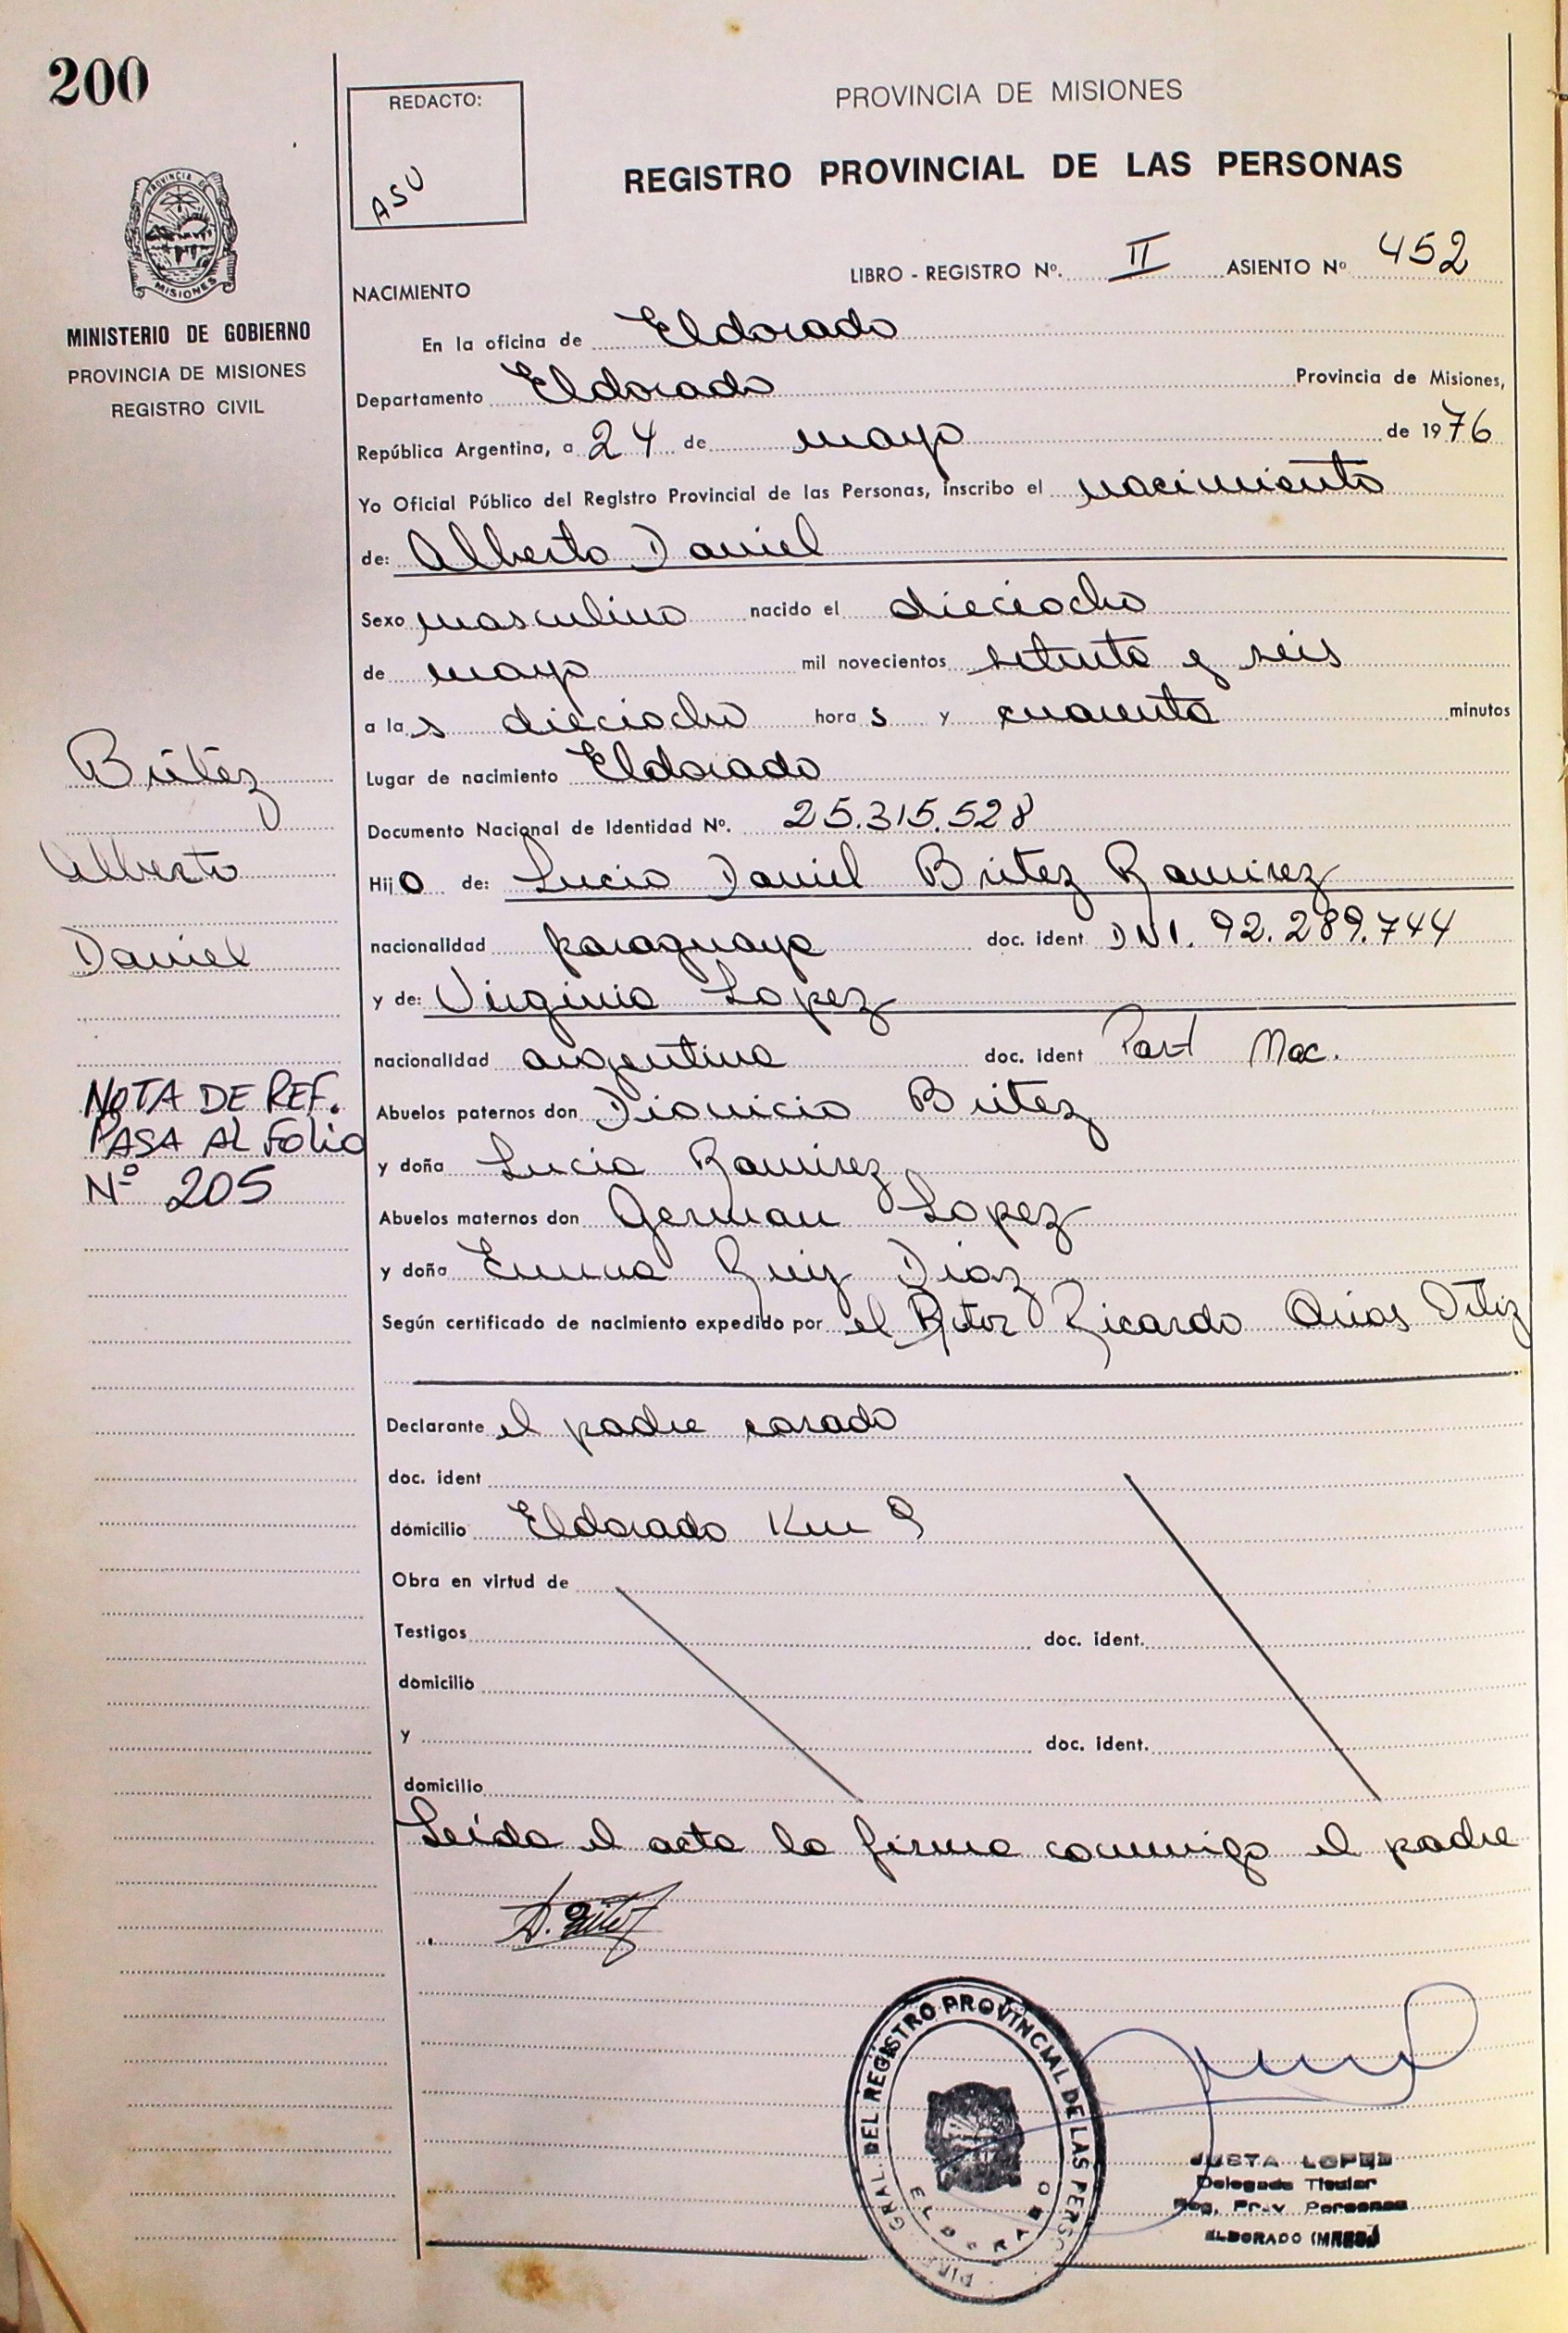 200
PROVINCIA DE
MISIONES
MINISTERIO DE GOBIERNO
PROVINCIA DE MISIONES
REGISTRO CIVIL
REDACTO:
ASU
PROVINCIA DE MISIONES
REGISTRO PROVINCIAL DE LAS PERSONAS
LIBRO - REGISTRO Nº. II ASIENTO Nº 452
NACIMIENTO
En la oficina de Eldorado
Departamento Eldorado Provincia de Misiones,
República Argentina, a 24 de mayo de 1976
Yo Oficial Público del Registro Provincial de las Personas, inscribo el nacimiento
de: Alberto Daniel
Sexo masculino nacido el dieciocho
de mayo mil novecientos setenta y seis
a las dieciocho horas y cuarenta minutos
Lugar de nacimiento Eldorado
Documento Nacional de Identidad Nº. 25.315.528
Hijo de: Lucio Daniel Britez Ramirez
nacionalidad paraguaya doc. ident DNI. 92.289.744
y de: Virginia Lopez
nacionalidad argentina doc. ident Part Nac.
Abuelos paternos don Dionicio Britez
y doña Lucia Ramirez
Abuelos maternos don German Lopez
y doña Emma Ruiz Diaz
Según certificado de nacimiento expedido por el Ricardo Arias Ortiz
Declarante el padre casado
doc. ident
domicilio Eldorado Km 9
Obra en virtud de
Testigos doc. ident.
domicilio
y doc. ident.
domicilio
Leída el acta la firma conmigo el padre
Britez
Alberto
Daniel
NOTA DE REF.
PASA AL FOLIO
Nº 205
GRAL. DEL REGISTRO PROVINCIAL DE LAS PERSO
ELDORADO
JUSTA LOPEZ
Delegada Titular
Reg. Prov Personas
ELDORADO